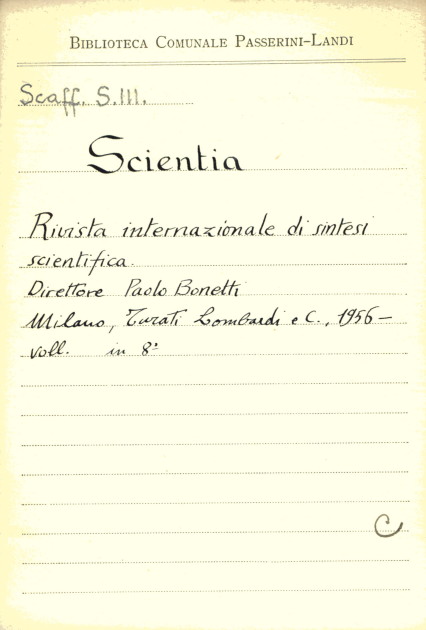 BIBLIOTECA COMUNALE PASSERINI-LANDI
Scaff. S.III.
Scientia
Rivista internazionale di sintesi
scientifica.
Direttore Paolo Bonetti
Milano, Turati Lombardi e C., 1956-
voll. in 8°
C